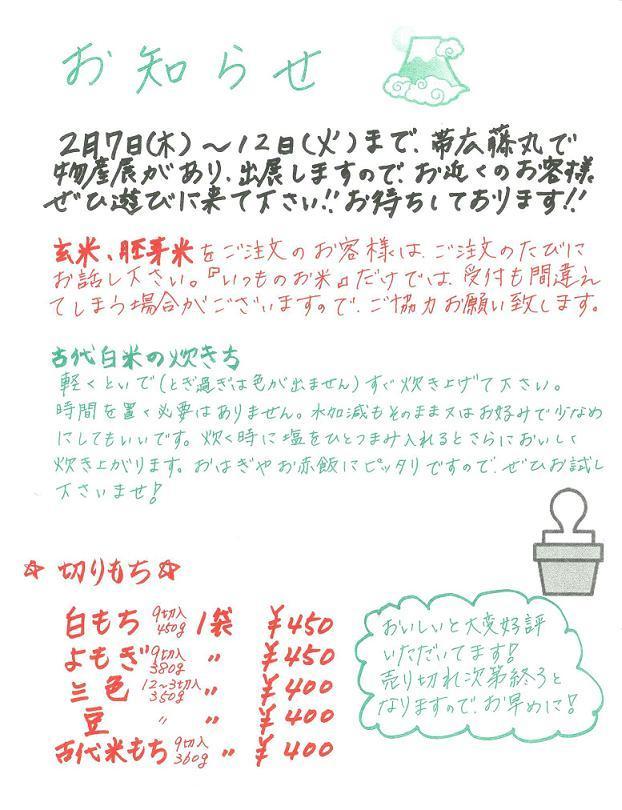 お知らせ
2月7日(木)～12日(火)まで、帯広藤丸で
物産展があり、出展しますので、お近くのお客様
ぜひ遊びに来て下さい!!お待ちしております!!
玄米、胚芽米をご注文のお客様は、ご注文のたびに
お話し下さい。『いつものお米』だけでは、受付も間違え
てしまう場合がございますので、ご協力お願い致します。
古代白米の炊き方
軽くといで(とぎ過ぎは色が出ません)すぐ炊き上げて下さい。
時間を置く必要はありません。水加減もそのまま又はお好みで少なめ
にしてもいいです。炊く時に塩をひとつまみ入れるとさらにおいしく
炊き上がります。おはぎやお赤飯にピッタリですので、ぜひお試し
下さいませ!
☆ 切りもち ☆
白もち 9切入 450g 1袋 ¥450
よもぎ 9切入 380g 〃 ¥450
三色 12~3切入 350g 〃 ¥400
豆 〃 〃 〃 ¥400
古代米もち 9切入 360g 〃 ¥400
おいしいと大変好評
いただいてます!
売り切れ次第終了と
なりますので、お早めに!